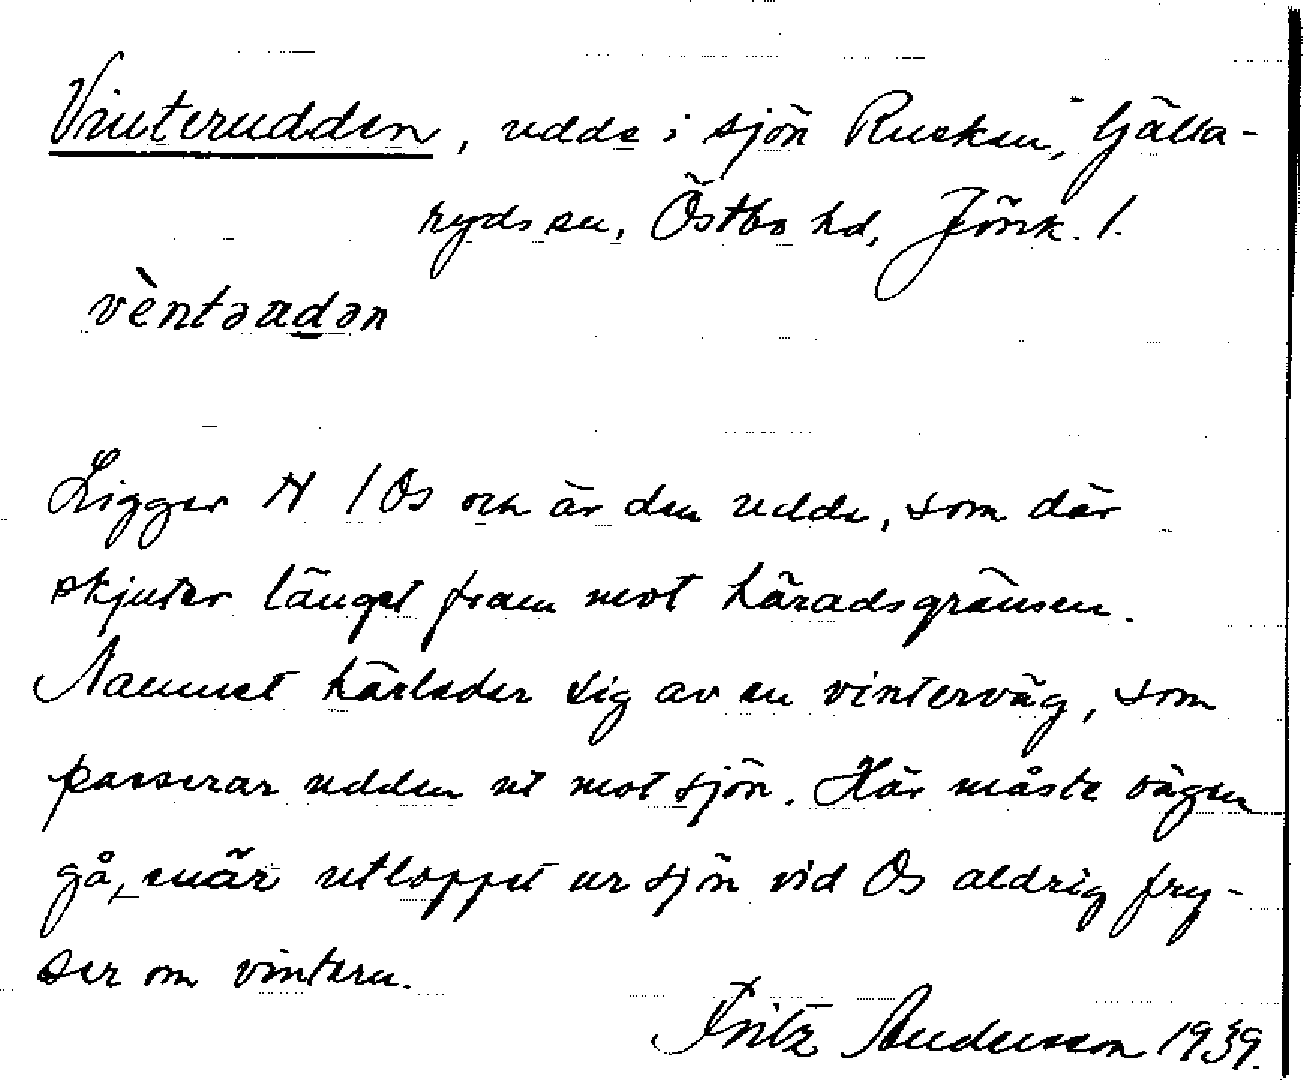 Vinterudden, udde i sjön Rusken, Gälla-
ryds sn, Östbo hd, Jönk. l.
vèntərudən
Ligger N / Os och är den udde, som där
skjuter längst fram mot häradsgränsen.
Namnet härleder sig av en vinterväg, som
passerar udden ut mot sjön. Här måste vägen
gå, när utloppet ur sjön vid Os aldrig fry-
ser om vintern.
Fritz Andersson 1939.